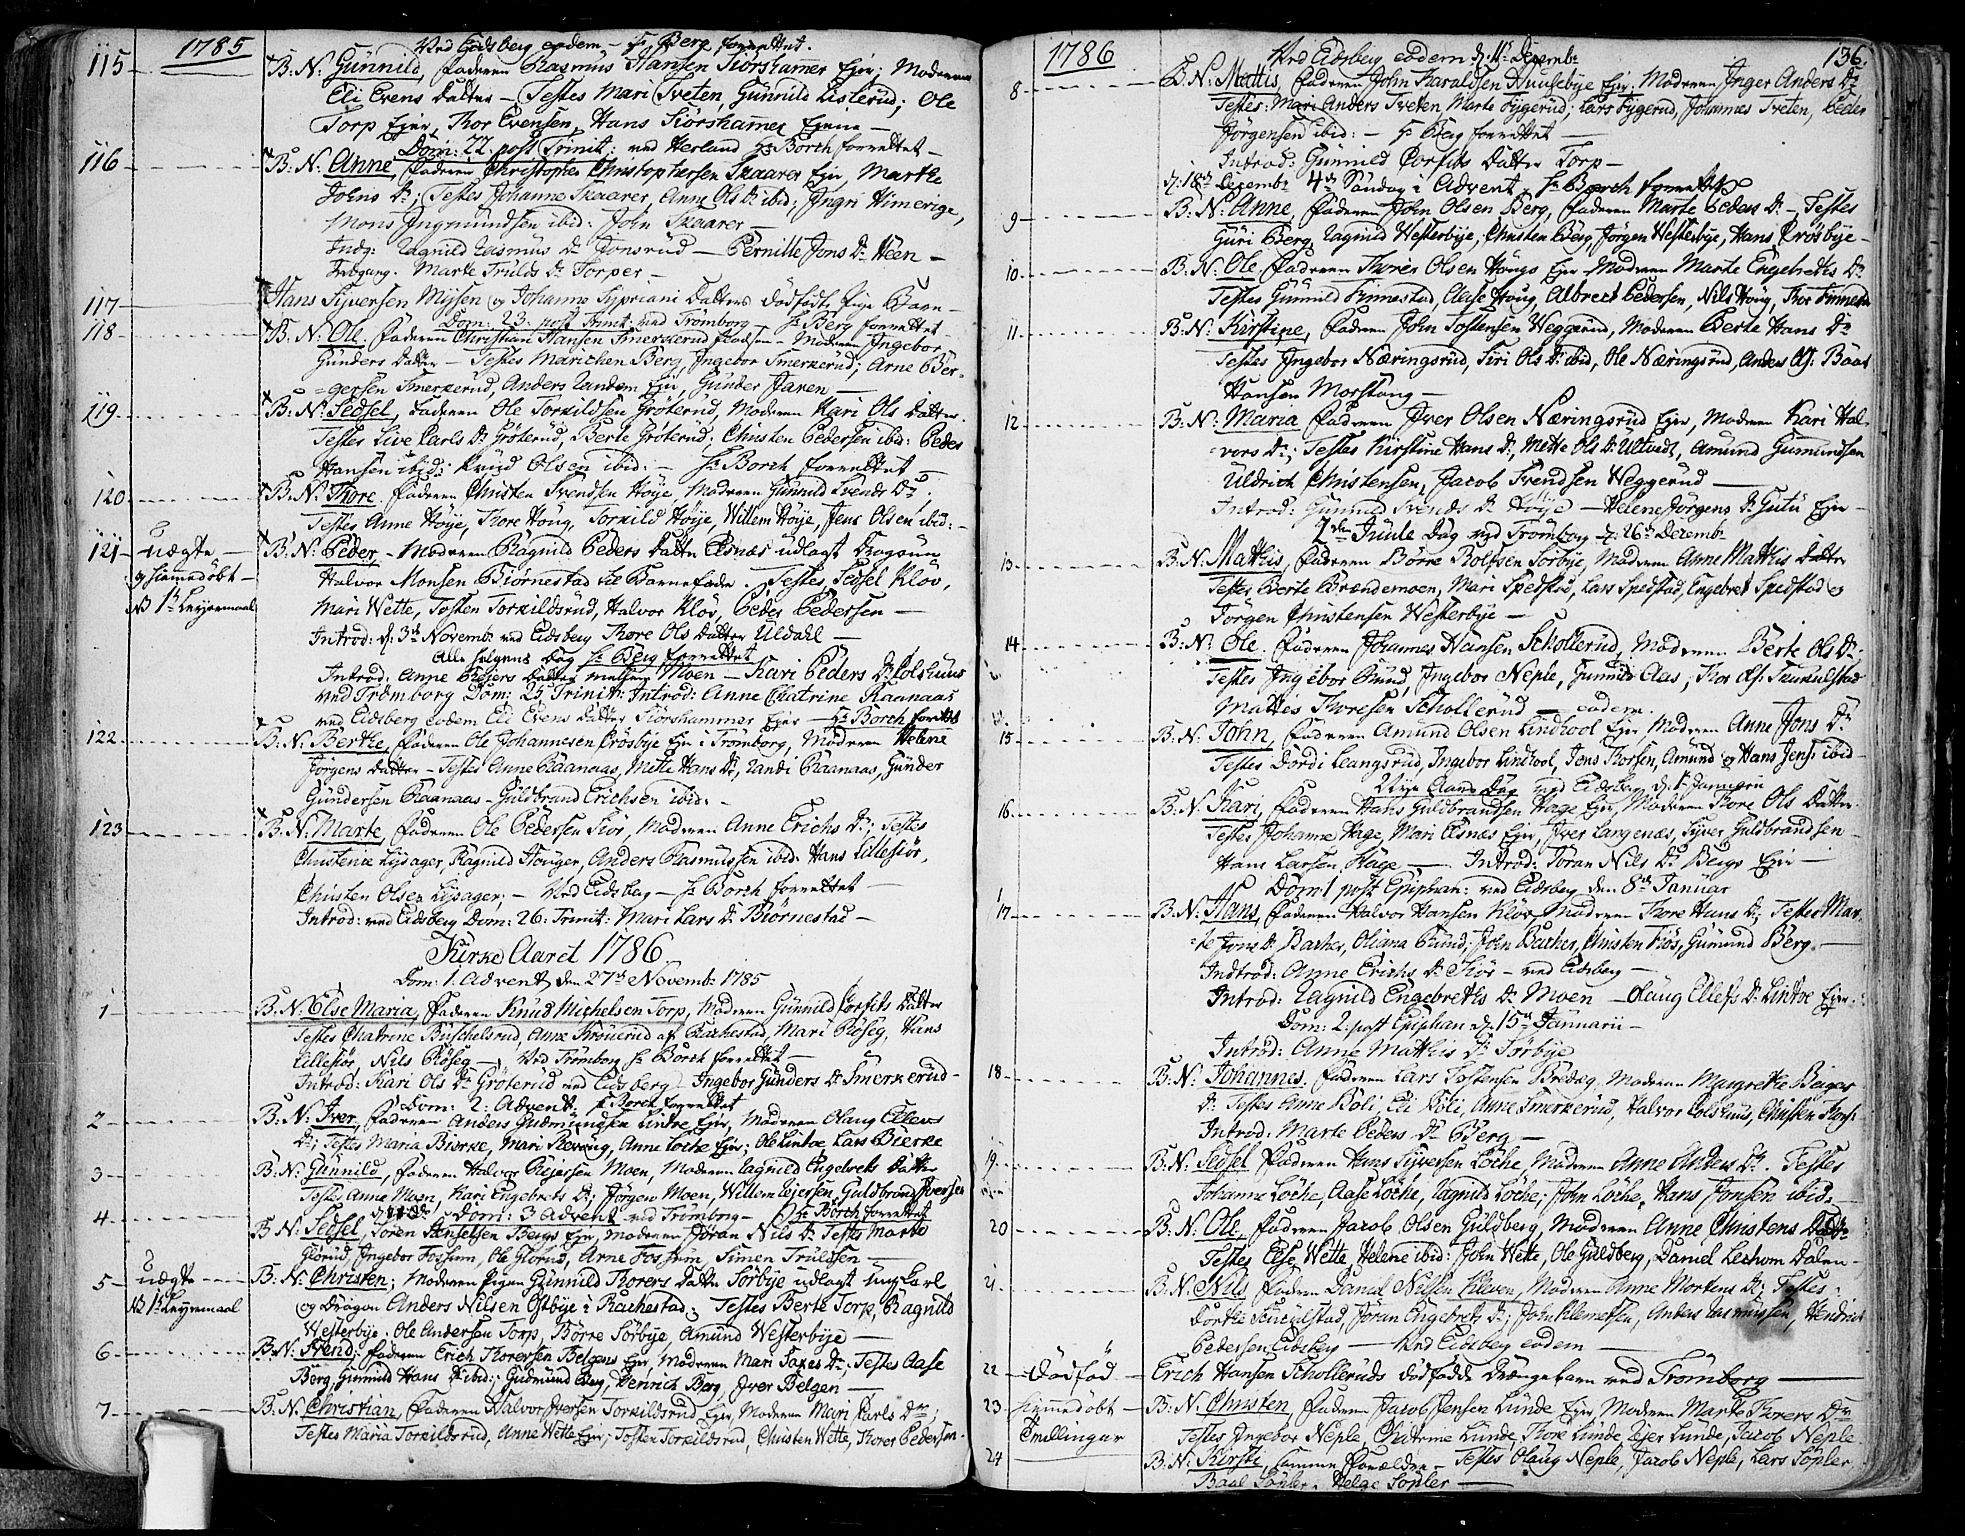 1785
Ved Eidsberg eodem - Hr Berg forrettet.
115 B: N: Günnild, faderen Rasmus Hansen Siørshammer Eier; Moderen
Eli Evens datter - Testes Mari Tveten, Günnild Listerud; Ole
Torp Eier, Thor Evensen, Hans Siørshammer Eierne -
Dom: 22 post Trinit: ved Herland Hr Borch forrettet -
116 B. N. Anne, faderen Christopher Christophersen Skaarer Eier, Marthe
Joens Dr; Testes Johanne Skaarer, Anne Ols Dr ibid; Ingri Himerige,
Mons Ingmundsen ibid: John Skaarer -
Indg: Ragnild Rasmus Dr Tonsrud - Pernille Jons Dr Heen -
Indgang. Marte Truls Dr Torper -
117 Hans Syversen Mysen og Johanne Sypriani datters dødfødte Pige Barn -
Dom: 23 post Trinit: ved Trømborg Hr Berg forrettet
118 B: N: Ole, faderen Christian Hansen Smerkerud Pladsen - Moderen Ingebor
Günders datter - Testes Marichen Berg, Ingebor Smerkerud; Arne Ber-
gersen Smerkerud, Anders Randem Eier, Günder Jaren -
119 B: N: Sedsel, faderen Ole Torkildsen Grøterud, Moderen Kari Ols datter
Testes Live Carls Dr Grøterud, Berte Grøterud; Christen Pedersen ibid: Peder
Hansen ibid; Knud Olsen ibid: - Hr Borch forrettet -
120 B: N: Thore, faderen Christen Svendsen Høye, Moderen Günnild Svends Dr.
Testes Anne Høye, Thore Houg, Torkild Høye, Willem Høye, Jens Olsen ibid: -
121 uægte B: N: Peder - Moderen Ragnild Peders datter Elsnæs udlagt Dragoun
og hiemedøbt - Halvor Monsen Biørnestad til Barnefader. Testes, Sedsel Kløv,
NB 1te Leyermaal Mari Wette, Tosten Torkildsrud, Halvor Kløv, Peder Pedersen -
Introd: d: 3de Novemb: ved Eidsberg Thore Ols datter Uldahl -
Alle helgens Dag Hr Berg forrettet
Introd: Anne Reiers datter Moen - Kari Peders Dr Colshuus
ved Trømborg Dom: 25 Trinit: Introd: Anne Catrine Raanaas
ved Eidsberg eodem Eli Evens datter Siørshammer Eier - Hr Borch forrettet
122 B: N: Berthe, faderen Ole Johannesen Crosbye Eier i Trømborg, Moderen Helene
Jørgens datter - Testes Anne Raanaas, Mette Hans Dr, Randi Raanaas, Günder
Gündersen Raanaas - Guldbrand Erichsen ibid: -
123 B: N: Marte, faderen Ole Pedersen Siør, Moderen Anne Erichs Dr; Testes
Christence Lysager, Ragnild Houger, Anders Rasmussen ibid: Hans Lillesiør,
Christen Olsen Lysager, - Ved Eidsberg - Hr Borch forrettet -
Introd: ved Eidsberg Dom: 26: Trinit: Mari Lars Dr Biørnestad -
Kirke Aaret 1786
Dom: 1. Advent den 27de Novemb: 1785
1 B: N: Else Maria, faderen Knud Michelsen Torp, Moderen Günnild Torfits datter
Testes Catrine Buschelsrud, Anne Krouerud af Rachestad, Mari Røseg, Hans
Lillesiør, Nils Røseg - Ved Trømborg Hr Borch forrettet -
Introd: Kari Ols Dr Grøterud ved Eidsberg - Ingebor Günders Dr Smerkerud -
Dom: 2: Advent, Hr Borch forrettet
2 B: N: Iver, faderen Anders Gudmundsen Lintoe Eier, Moderen Olaug Ellevs
Dr; Testes Maria Biørke, Mari Revoug, Anne Løche Eier; Ole Lintoe Lars Bierke
3 B: N: Günnild, faderen Halvor Reiersen Moen, Moderen Ragnild Engebrets datter
Testes Anne Moen, Kari Engebrets Dr; Jørgen Moen, Willem Reiersen, Guldbrand Iversen
Dom: 3 Advent ved Trømborg - Hr Borch forrettet
4 B: N: Sedsel, Søren Anselssen Bergs Eier, Moderen Jøran Nils Dr Testes Marte
Glorud, Ingebor Fossum, Ole Glorud, Arne Fossum Simen Trulssen -
5 uægte B: N: Christen; Moderen Pigen Günnild Thorers datter Sørbye udlagt ungkarl
NB 1te Leyermaal og Dragon Anders Nilsen Østbye i Rachestad; Testes Berte Torp, Ragnild
Westerbye. Ole Andersen Torp, Børre Sørbye, Amund Westerbye -
6 B: N: Svend; faderen Erich Thoresen Belgens Eier, Moderen Mari Saxes Dr; Testes Aase
Berg, Günnild Hans Dr ibid; Gudmund Berg, Henrich Berg, Iver Belgen -
7 B: N. Christian, faderen Halvor Iversen Torkildsrud Eier, Moderen Mari Carls Dr;
Testes Maria Torkildsrud, Anne Wette Eier; Tosten Torkildsrud, Christen Wette, Thorer Pedersen.
1786 136.
Ved Eidsberg eodem d: 11te Decemb:
8 B: N: Mattis, faderen John Haraldsen Huusebye Eier; Moderen Inger Anders Dr
Testes: Mari Anders Tveten, Marte Rygerud; Lars Rygerud, Johannes Tveten, Peder
Jørgensen ibid: - Hr Berg forrettet -
Introd: Günnild Torfits datter Torp -
d: 18de Decemb: 4de Søndag i Advent, Hr Borch forrettet
9 B: N: Anne, faderen John Olsen Berg, faderen Marte Peders Dr - Testes
Guri Berg, Ragnild Westerbye, Christen Berg, Jørgen Westerbye, Hans Crosbye -
10 B: N: Ole faderen Thores Olsen Hougs Eier - Moderen Marte Engebrets Dr
Testes Günnild Finnestad, Aase Houg, Albrect Pedersen, Nils Houg, Thor Finnestad
11 B: N: Kirstine, faderen John Tostensen Weggerud, Moderen Berte Hans Dr
Testes Ingebor Næringsrud, Siri Ols Dr ibid, Ole Næringsrud, Anders Ols: Baat
Hansen Morstang -
12 B: N: Maria faderen Iver Olsen Næringsrud Eier, Moderen Kari Hal-
vors Dr; Testes Kirstine Hans Dr, Mette Ols Dr Ultvedt, Amund Gumundsen
Uldrich Christensen, Jacob Svendsen Weggerud -
Introd: Günnild Svends Dr Høye - Helene Jørgens Dr Gutu Eier -
2den Juule Dag ved Trømborg d: 26de Decemb:
13 B: N: Mathis, faderen Børre Rolfsen Sørbye, Moderen Anne Mathis datter
Testes Berte Brændemoen, Mari Spedstad, Lars Spedstad, Engebret Spedstad og
Jørgen Christensen Westerbye -
14 B: N: Ole. faderen Johannes Hansen Schollerud, Moderen Berte Ols Dr;
Testes Ingebor Rund, Ingebor Neple, Günnild Aas, Thor Ols: Skurulstad
Mattes Thoresen Schollerud - eodem.
15 B: N: John, faderen Amund Olsen Lindhool Eier Moderen Anne Jons Dr
Testes Dordi Leangsrud, Ingebor Lindhool, Jens Thorsen, Amund og Hans Jens: ibid -
Nytt Aars Dag ved Eidsberg d. 1te Januarii
16 B: N: Kari, faderen Hans Guldbrandsen Hage Eier, Moderen Thore Ols datter.
Testes Johanne Hage, Mari Elsnes Eier, Iver Langenæs, Syver Guldbrandsen -
Hans Larsen Hage, - Introd: Jøran Nils Dr Bergs Eier -
Dom 1 post Epiphan: ved Eidsberg den 8de Januar
17 B: N: Hans, faderen Halvor Hansen Kløv, Moderen Thore Hans Dr, Testes Mar-
te Jons Dr Bacher, Oliana Rund; John Bacher, Christen Fiøs, Gumund Berg. -
Indtrod: Anne Erichs Dr Siør - ved Eidsberg -
Introd: Ragnild Engebreths Dr Moen - Olaug Ellefs Dr Lintoe Eier.
Dom: 2. post Epiphan d. 15de Januarii -
Introd: Anne Mathis Dr Sørbye
18 B: N: Johannes, faderen Lars Tostensen Bredeg, Moderen Margrethe Berger
Dr: Testes Anne Bøli, Eli Bøli, Anne Smerkerud, Halvor Colshuus, Christen Thors:
Introd: Marte Peders Dr Berg -
19 B: N: Sedsel faderen Hans Syversen Løche, Moderen Anne Anders Dr. Testes
Johanne Løche, Aase Løche, Ragnild Løche; John Løche, Hans Jonsen ibid. -
20 B: N: Ole, faderen Jacob Olsen Guldberg, Moderen Anne Christens datter
Testes Else Wette, Helene ibid: John Wette, Ole Guldberg, Daniel Lexhom Dalen -
21 B: N: Nils faderen Daniel Nilsen Kleven, Moderen Anne Mortens Dr; Testes:
Dorthe Skurulstad, Jøran Engebrets Dr; John Klemetsen, Anders Rasmussen, Hendrich
Pedersen Eidsberg - Ved Eidsberg eodem -
22 Dødfød - Erich Hansen Scholleruds dødfødde Drengebarn ved Trømborg -
23 hiemedøbt - B: N: Christen, faderen Jacob Jensen Lunde Eier, Moderen Marte Thorers Dr
Tvillinger Testes Ingebor Neple, Catrine Lunde, Thore Lunde, Reier Lunde, Jacob Neple
24 B: N: Kirsti, samme forældre - Testes Olaug Neple, Jacob Neple, Lars Sopler
Baal Sopler, Helge Sopler -